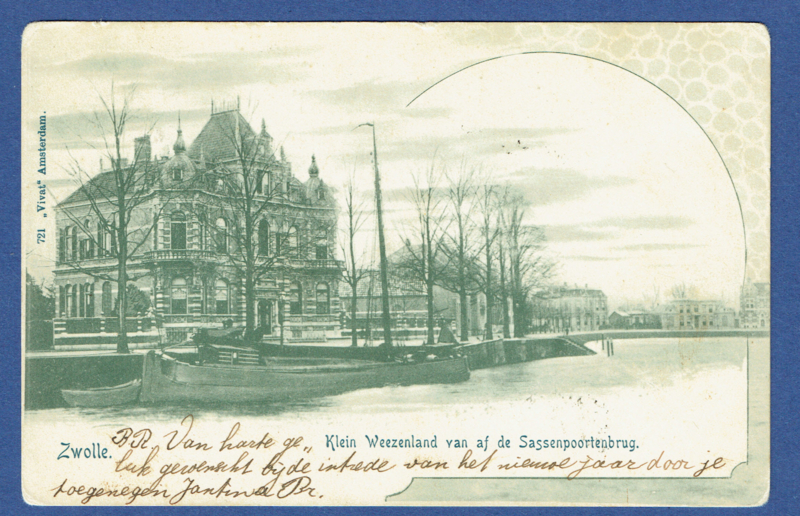 721 „Vivat" Amsterdam.
Zwolle.
Klein Weezenland van af de Sassenpoortenbrug.
P.R. Van harte ge„
luk gewenscht bij de intrede van het nieuwe jaar door je
toegenegen Jantina Pr.